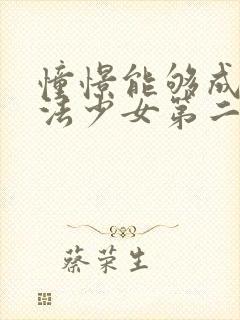 憧憬能够成
法少女第二
蔡荣生